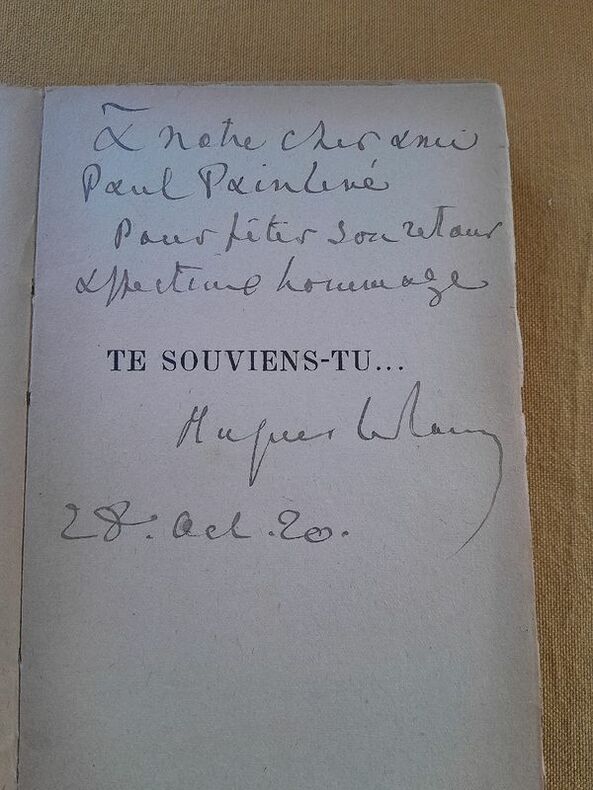 À notre cher ami
Paul Painlevé
Pour fêter son retour
affectueux hommage
TE SOUVIENS-TU...
Hugues Le Roux
28. Oct. 20.